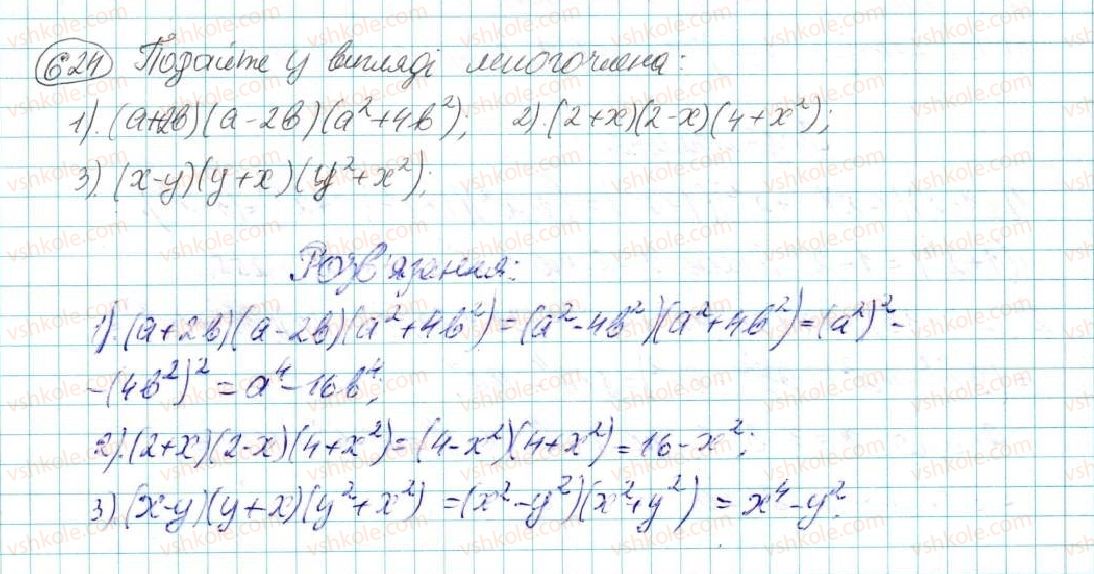 624 Подайте у вигляді многочлена:
1). (a+2b)(a-2b)(a²+4b²); 2). (2+x)(2-x)(4+x²);
3). (x-y)(y+x)(y²+x²);
Розв'язання:
1). (a+2b)(a-2b)(a²+4b²)=(a²-4b²)(a²+4b²)=(a²)²-
-(4b²)²=a⁴-16b⁴;
2). (2+x)(2-x)(4+x²)=(4-x²)(4+x²)=16-x²;
3). (x-y)(y+x)(y²+x²)=(x²-y²)(x²+y²)=x⁴-y².